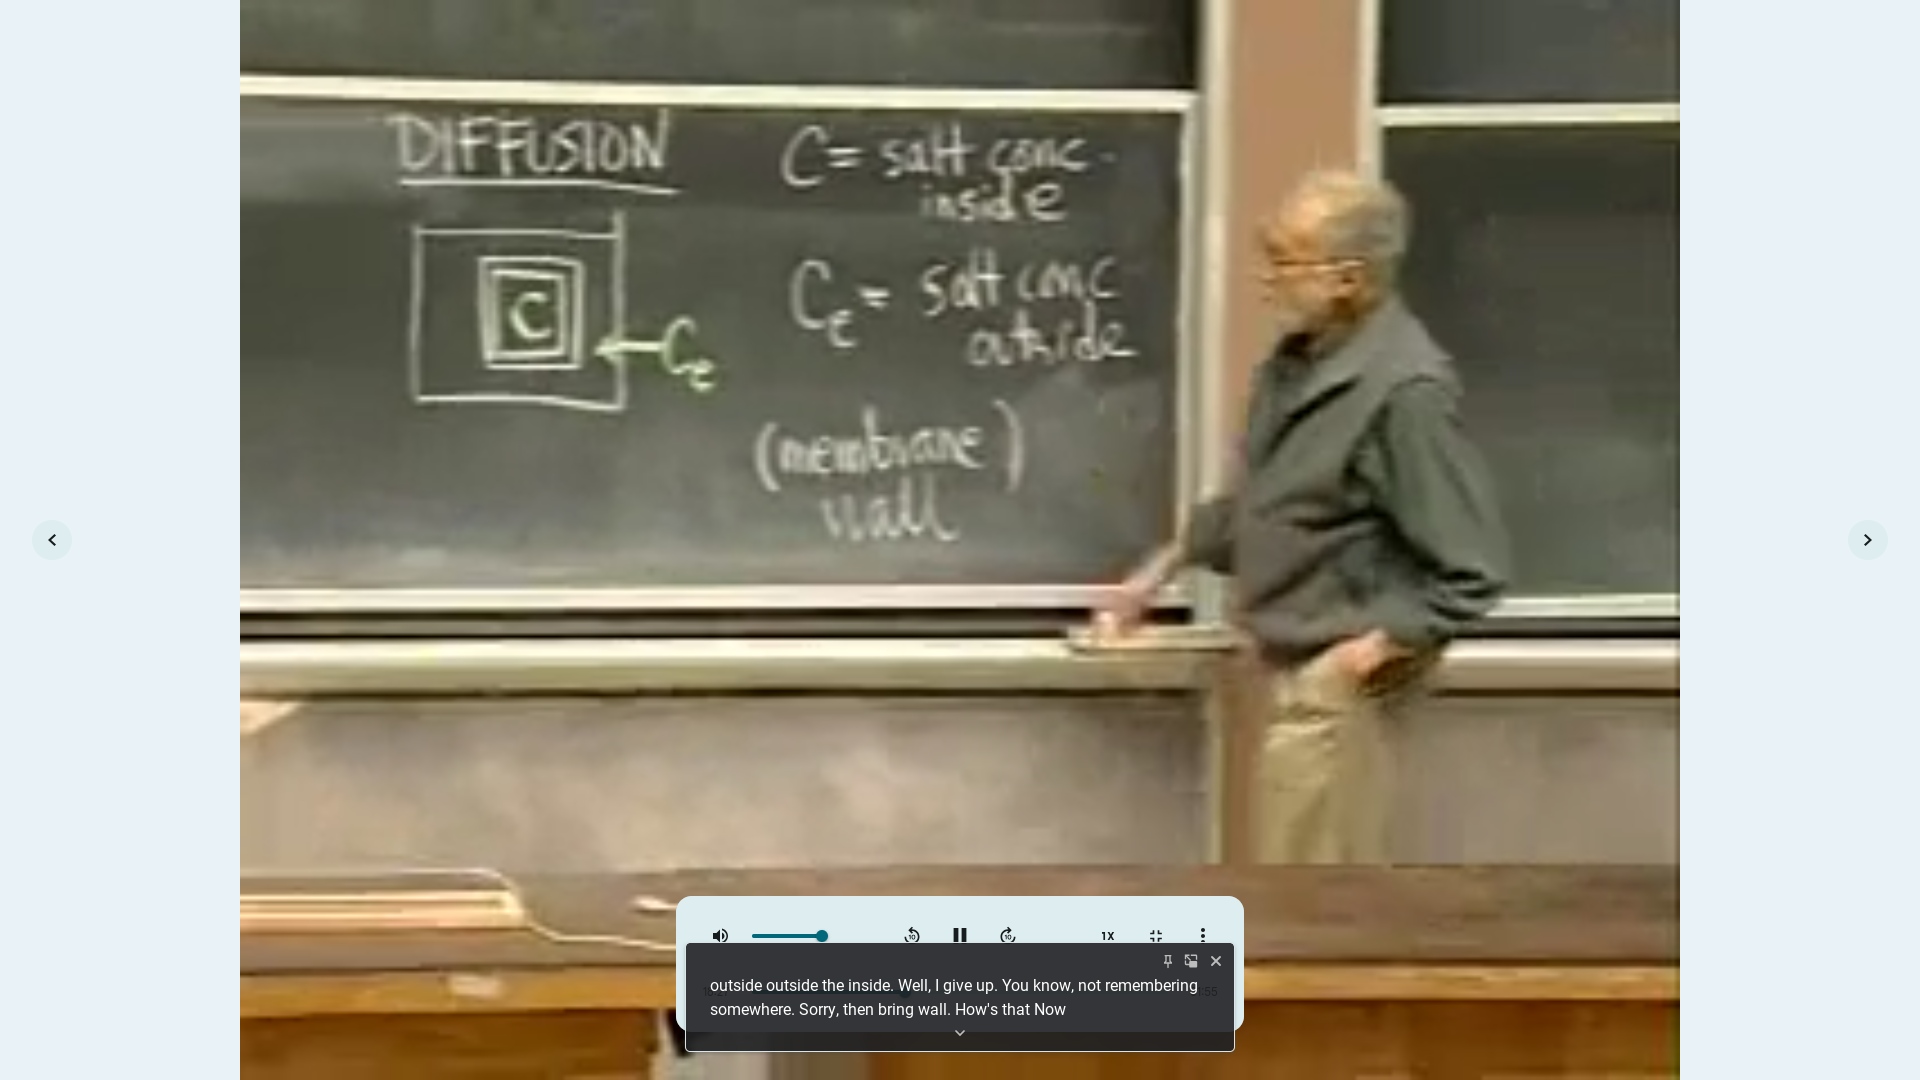 DIFFUSION
C = salt conc.
inside
C
Ce = salt conc
outside
Ce
(membrane)
wall
10
10
1X
outside outside the inside. Well, I give up. You know, not remembering
somewhere. Sorry, then bring wall. How's that Now